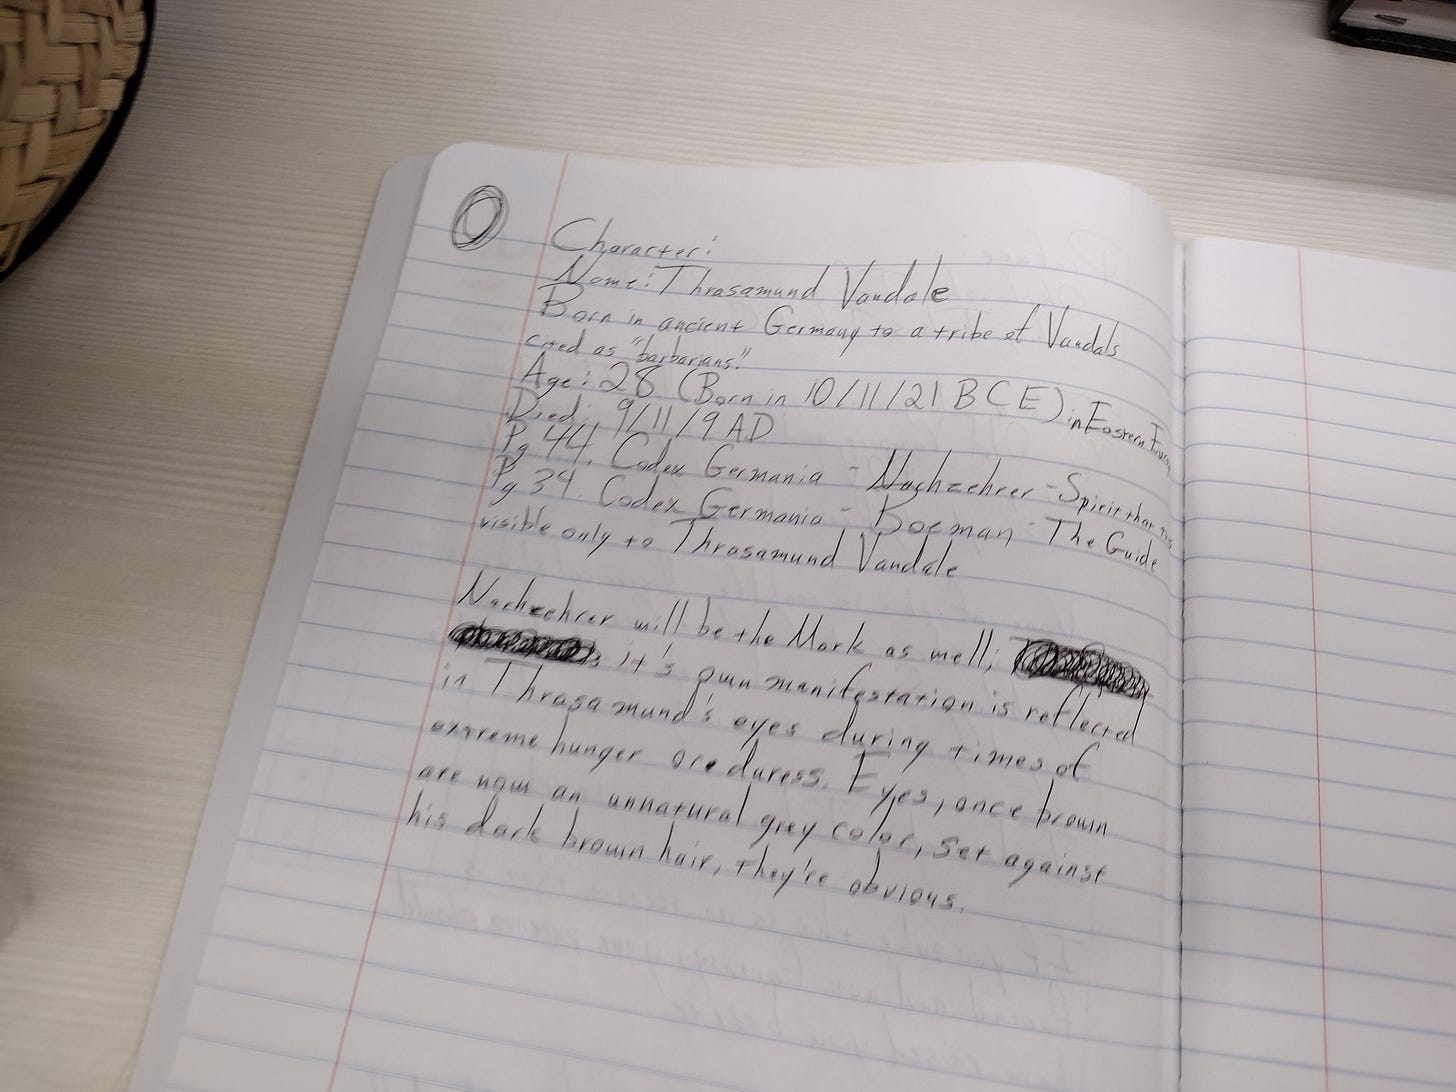 Character:
Name: Thrasamund Vandale
Born in ancient Germany to a tribe of Vandals
cited as "barbarians."
Age: 28 (Born in 10/11/21 BCE) in Eastern
Died: 9/11/9 AD
Pg 44. Codex Germania - Nachzehrer - Spirit that
Pg 34. Codex Germania - Boeman - The Guide
visible only to Thrasamund Vandale
Nachzehrer will be the Mark as well;
it's own manifestation is reflected
in Thrasamund's eyes during times of
extreme hunger or duress. Eyes, once brown
are now an unnatural grey color, set against
his dark brown hair, they're obvious.